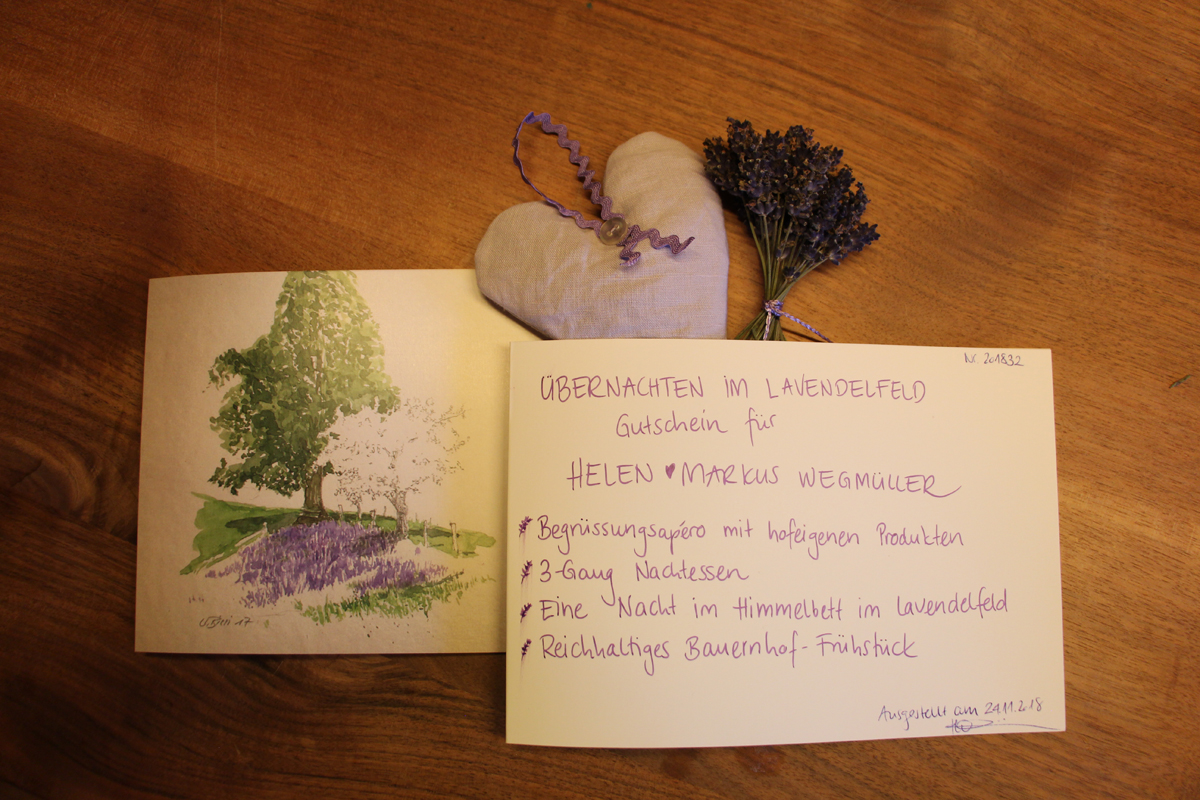 Nr. 201832
ÜBERNACHTEN IM LAVENDELFELD
Gutschein für
HELEN ♥ MARKUS WEGMÜLLER
Begrüssungsapéro mit hofeigenen Produkten
3-Gang Nachtessen
Eine Nacht im Himmelbett im Lavendelfeld
Reichhaltiges Bauernhof-Frühstück
Ausgestellt am 24.11.2018
17